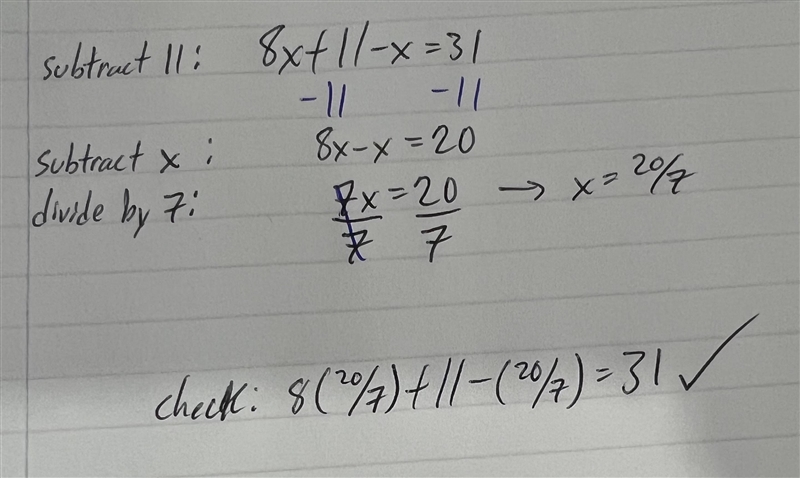 subtract 11: 8x+11-x=31
-11 -11
subtract x: 8x-x=20
divide by 7: 7x/7 = 20/7 → x=20/7
check: 8(20/7)+11-(20/7)=31 ✓